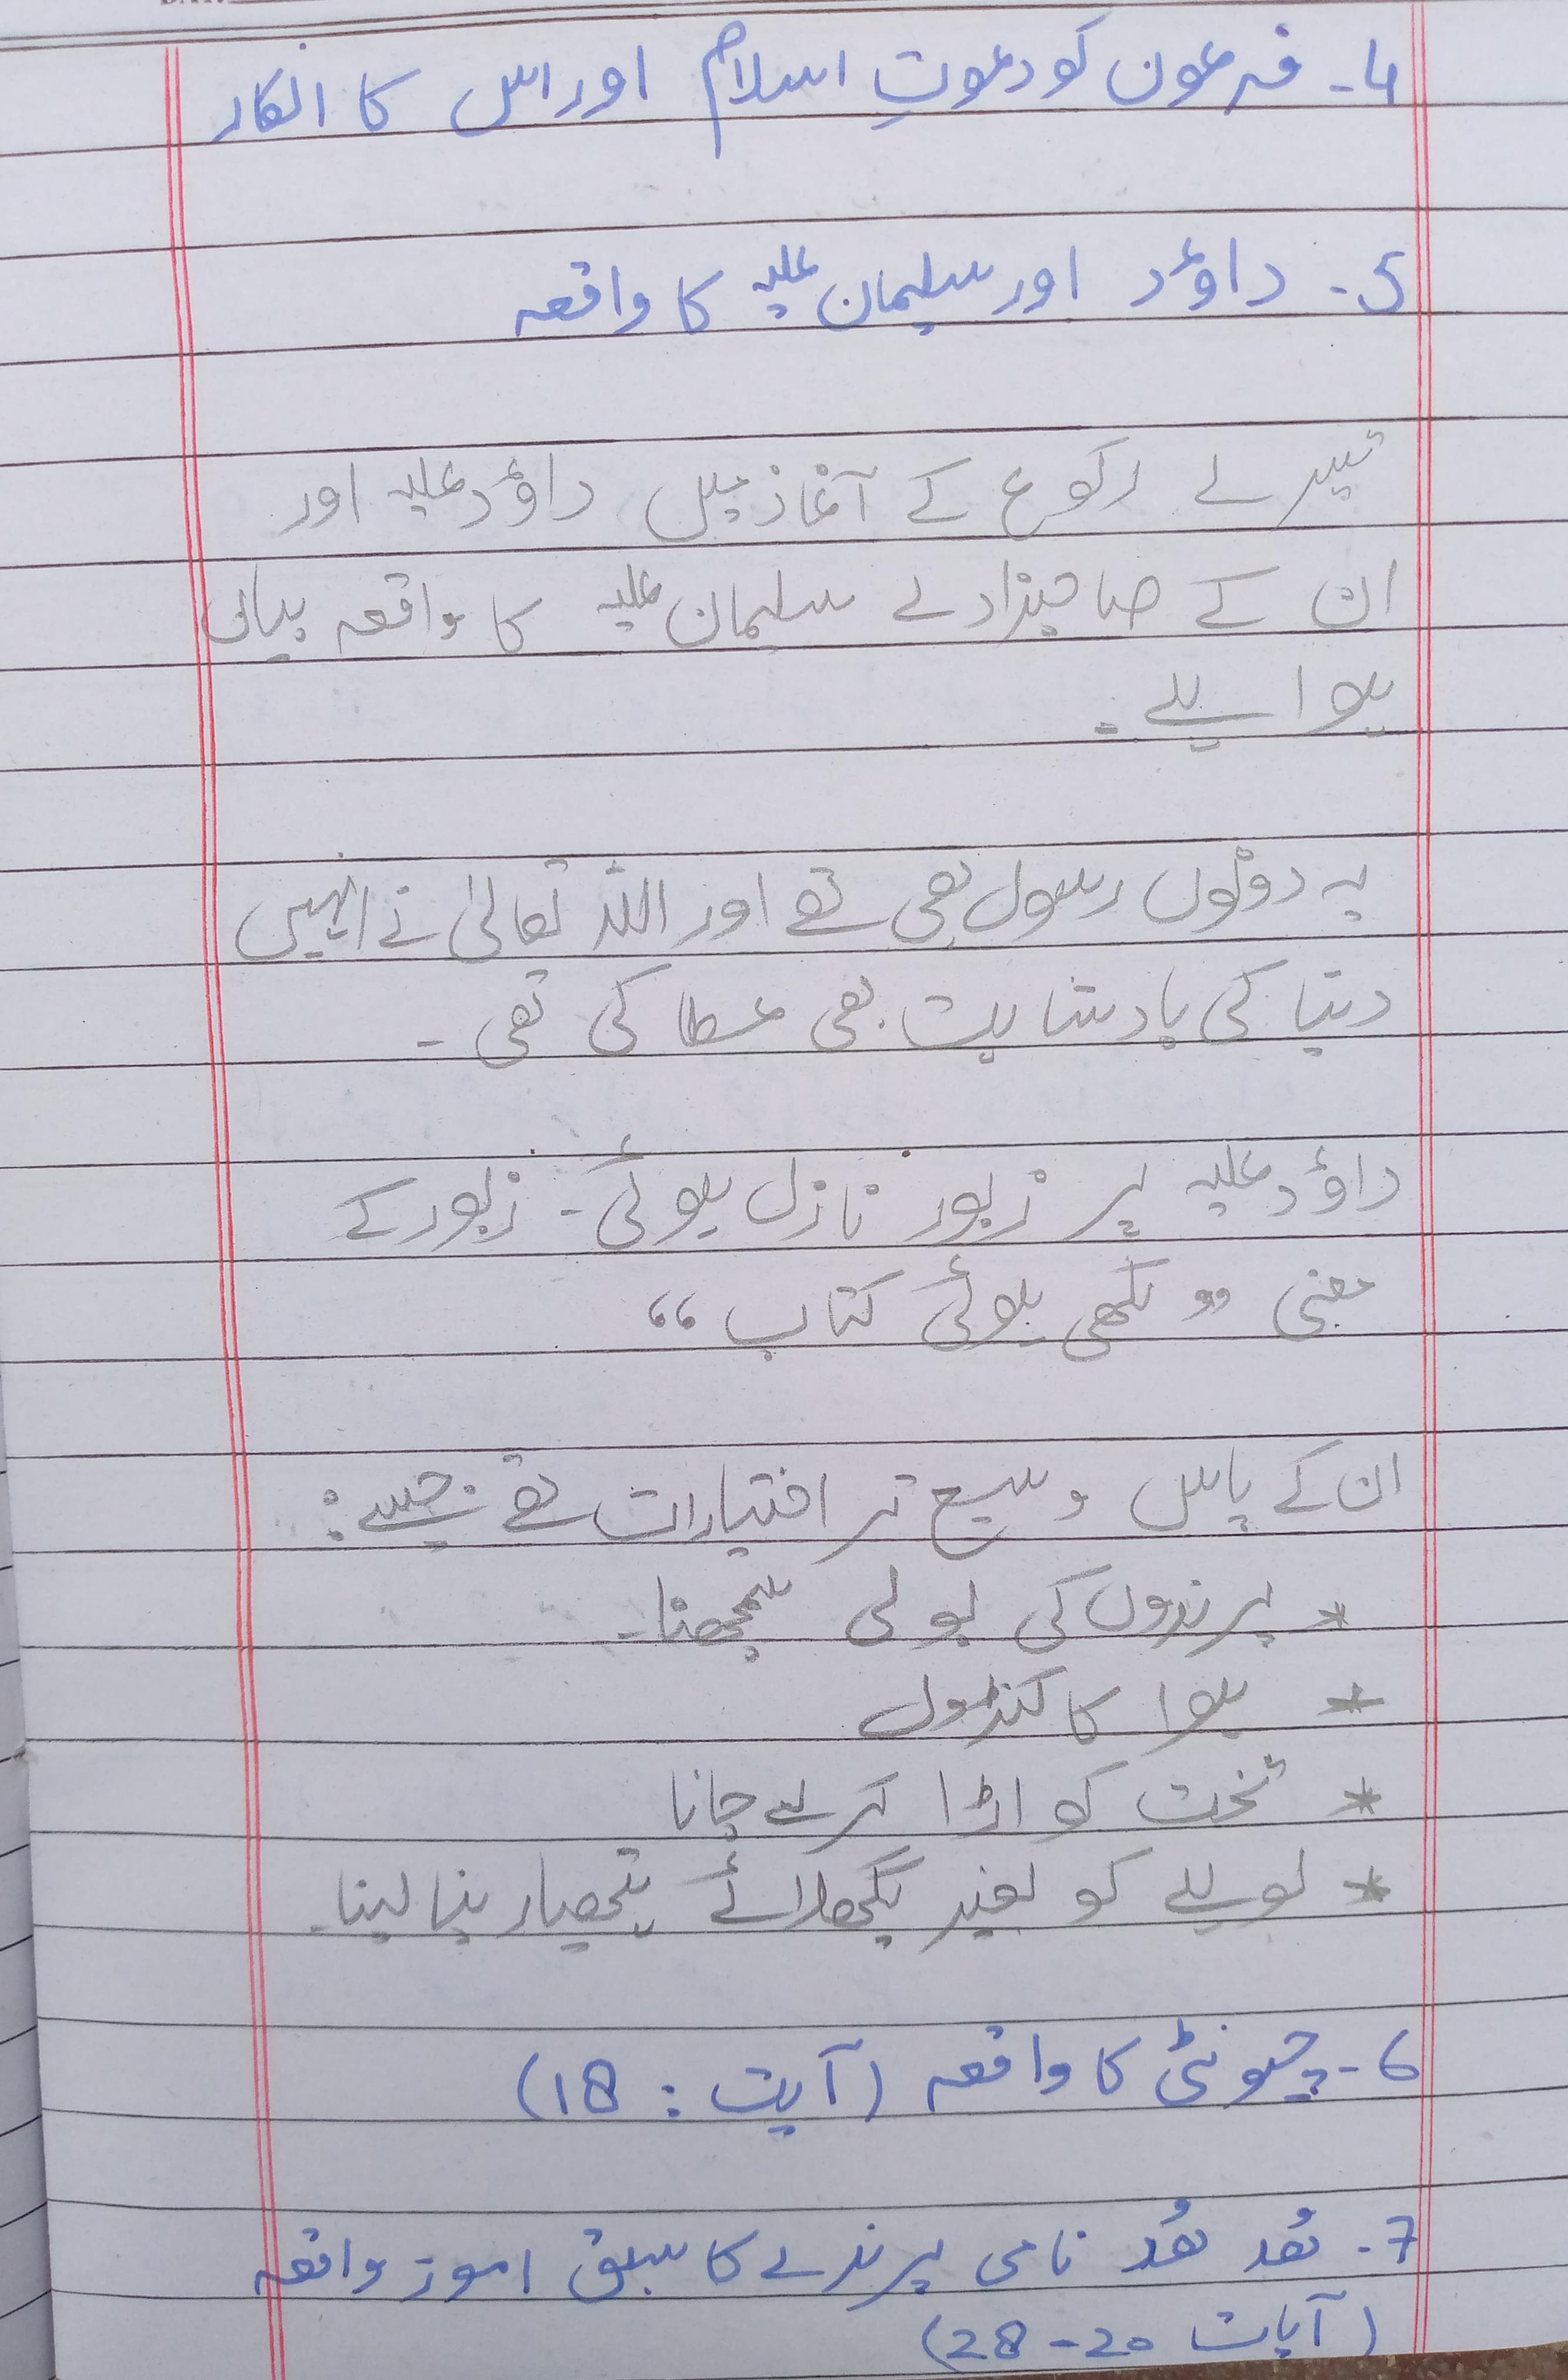 4۔ فرعون کو دعوتِ اسلام اور اس کا انکار
5۔ داؤد اور سلیمان علیہ کا واقعہ
تیسرے رکوع کے آغاز میں داؤد علیہ اور
ان کے صاحبزادے سلیمان علیہ کا واقعہ بیان
ہوا ہے۔
یہ دونوں رسول بھی تھے اور اللہ تعالیٰ نے انہیں
دنیا کی بادشاہت بھی عطا کی تھی۔
داؤد علیہ پر زبور نازل ہوئی۔ زبور کے
معنی ”لکھی ہوئی کتاب“
ان کے پاس وسیع تر اختیارات تھے جیسے:
* پرندوں کی بولی سمجھنا۔
* ہوا کا کنٹرول
* تخت کو اڑا کر لے جانا
* لوہے کو بغیر پگھلائے ہتھیار بنا لینا۔
6۔ چیونٹی کا واقعہ (آیت: 18)
7۔ ھُد ھُد نامی پرندے کا سبق اموز واقعہ
(آیات 20-28)